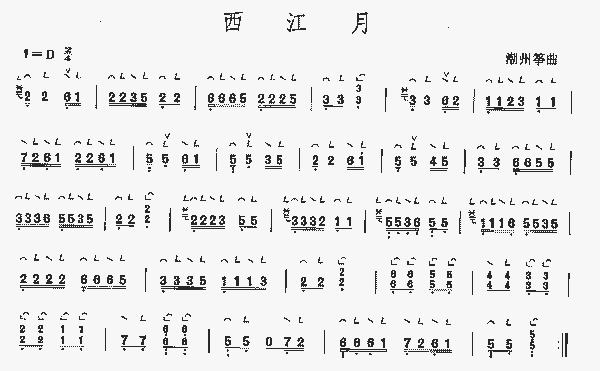 西江月
1=D 2/4 潮州筝曲
2 2 6 1 | 2235 2 2 | 6665 2225 | 3 3 3 3 | 3 3 62 | 1123 1 1 |
7261 2261 | 5 5 6 1 | 5 5 35 | 2 2 61 | 5 5 45 | 3 3 6655 |
3336 5535 | 2 2 2 2 | 2223 5 5 | 3332 1 1 | 5536 5 5 | 1116 5535 |
2222 6665 | 3335 1113 | 2 2 2 2 | 6 6 5 5 6 6 5 5 | 4 4 3 3 4 4 3 3 |
2 2 1 1 2 2 1 1 | 7 7 6 6 6 6 | 5 5 072 | 6661 7261 | 5 5 5 5 :||